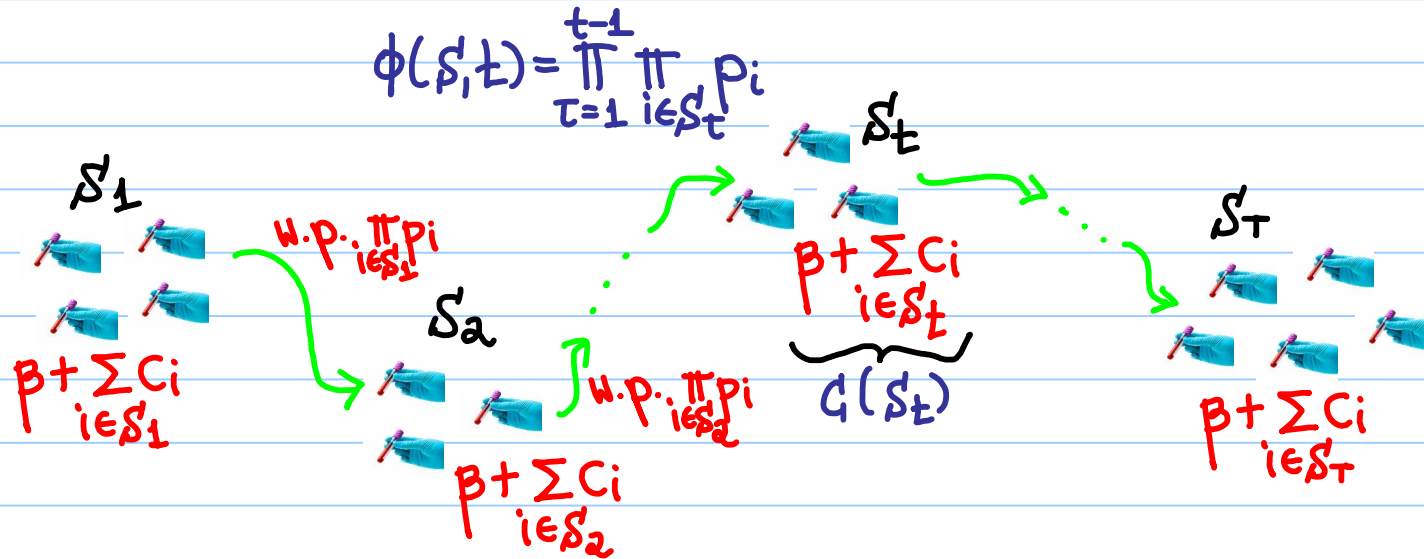 ϕ(S,t) = ∏_{τ=1}^{t-1} ∏_{i∈S_t} p_i
S_1
w.p. ∏_{i∈S_1} p_i
β + ∑_{i∈S_1} C_i
S_2
w.p. ∏_{i∈S_2} p_i
β + ∑_{i∈S_2} C_i
S_t
β + ∑_{i∈S_t} C_i
C(S_t)
S_T
β + ∑_{i∈S_T} C_i